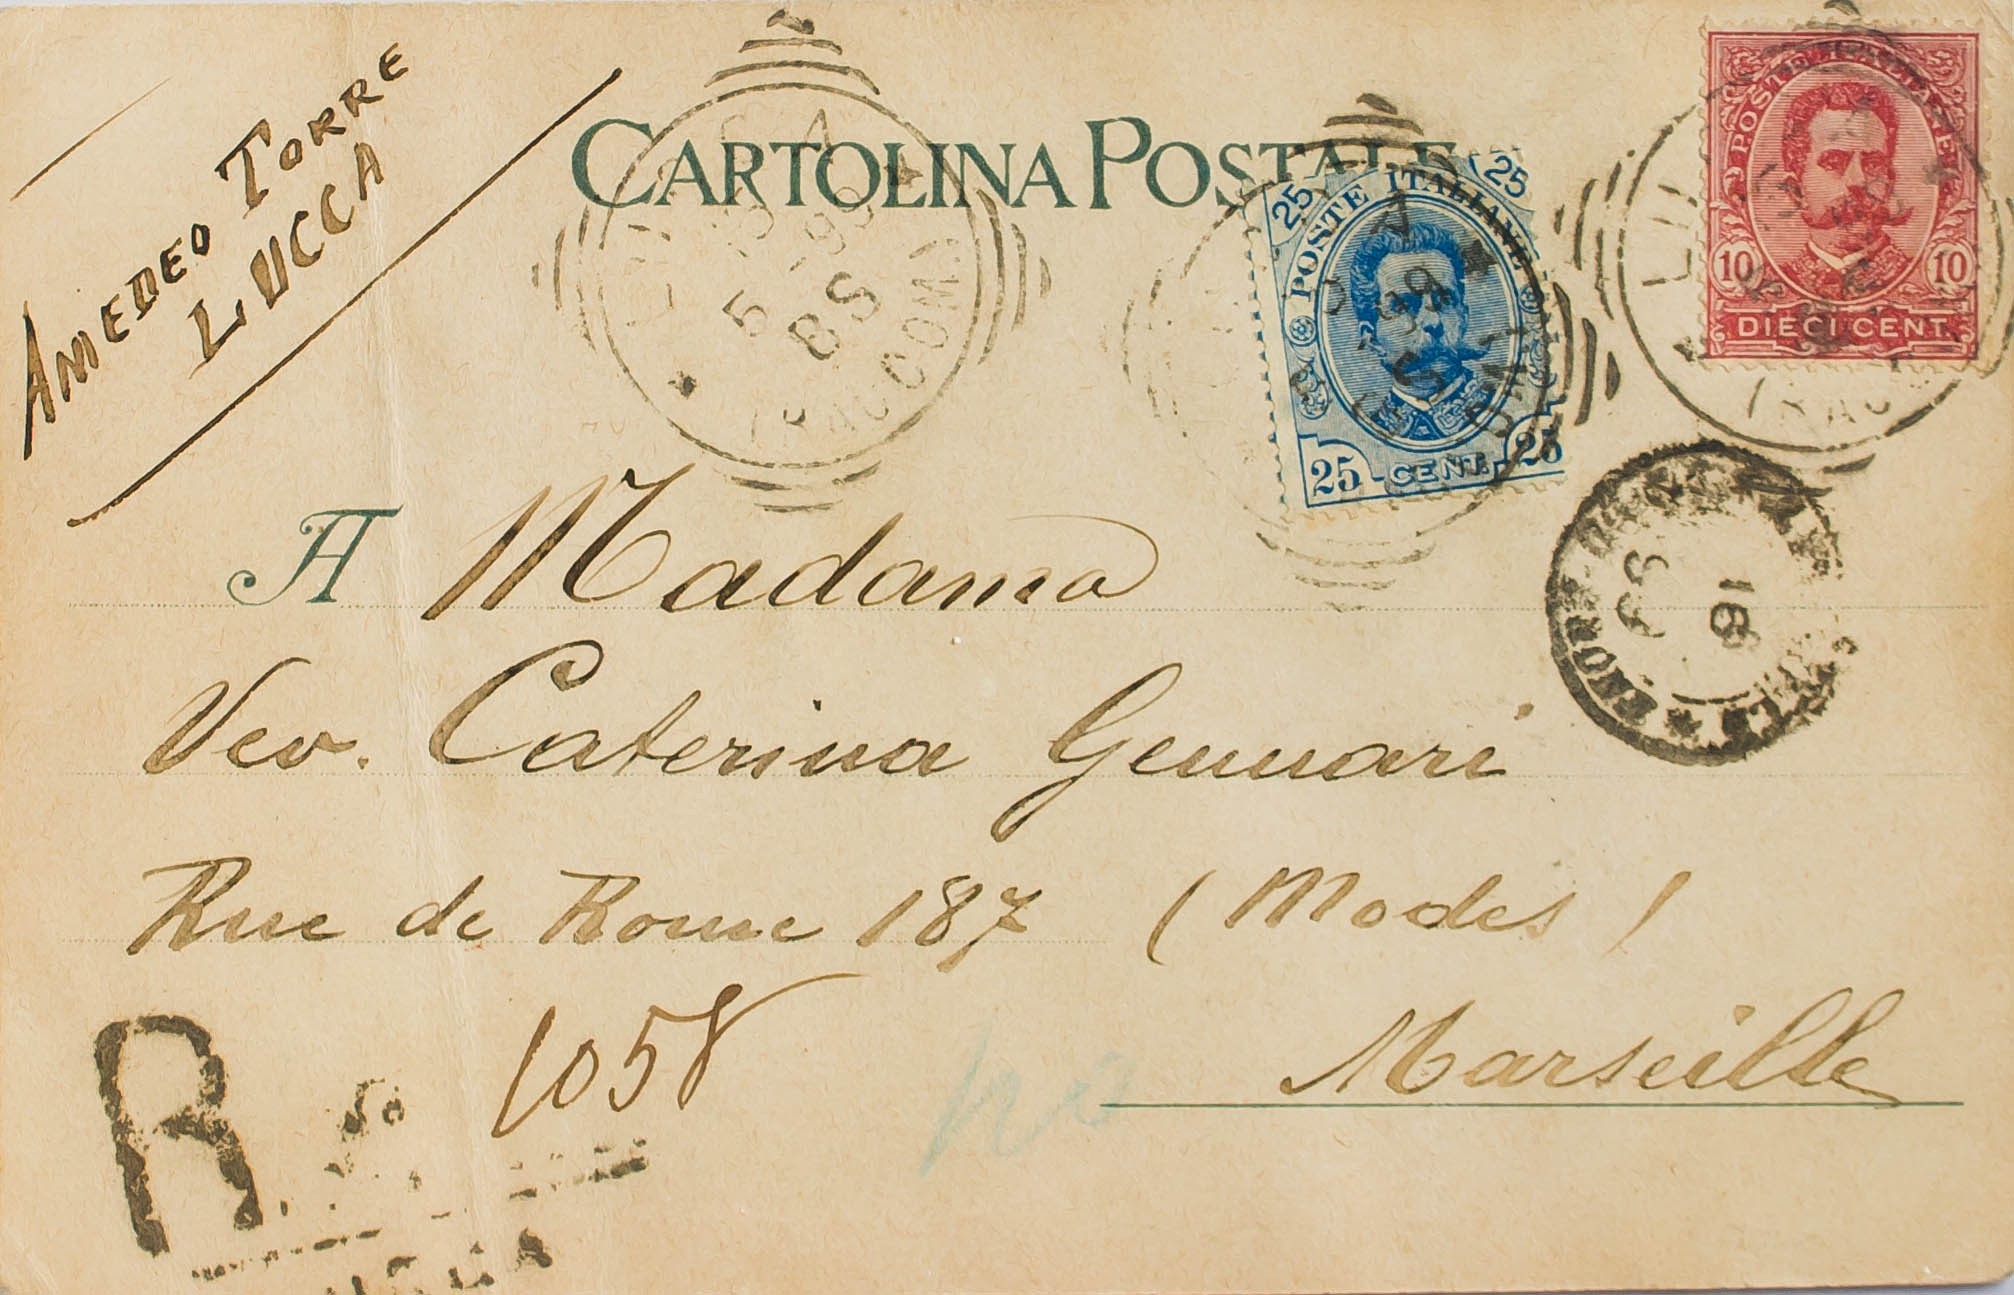 AMEDEO TORRE
LUCCA
CARTOLINA POSTALE
POSTE ITALIANE
25 25
25 CENT. 25
10 10
DIECI CENT.
5
8 S
A Madama
Vev. Caterina Gennari
Rue de Rome 187 (Modes)
Marseille
R
1058
18
99